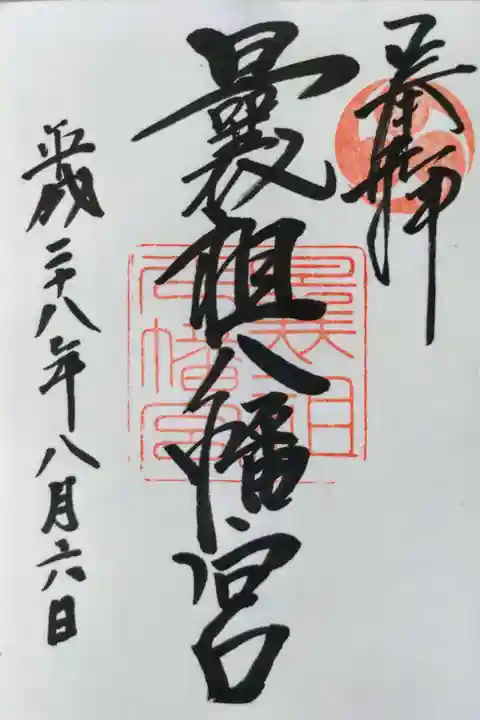 奉拝
曩祖八幡宮
曩祖
八幡宮
平成二十八年八月六日